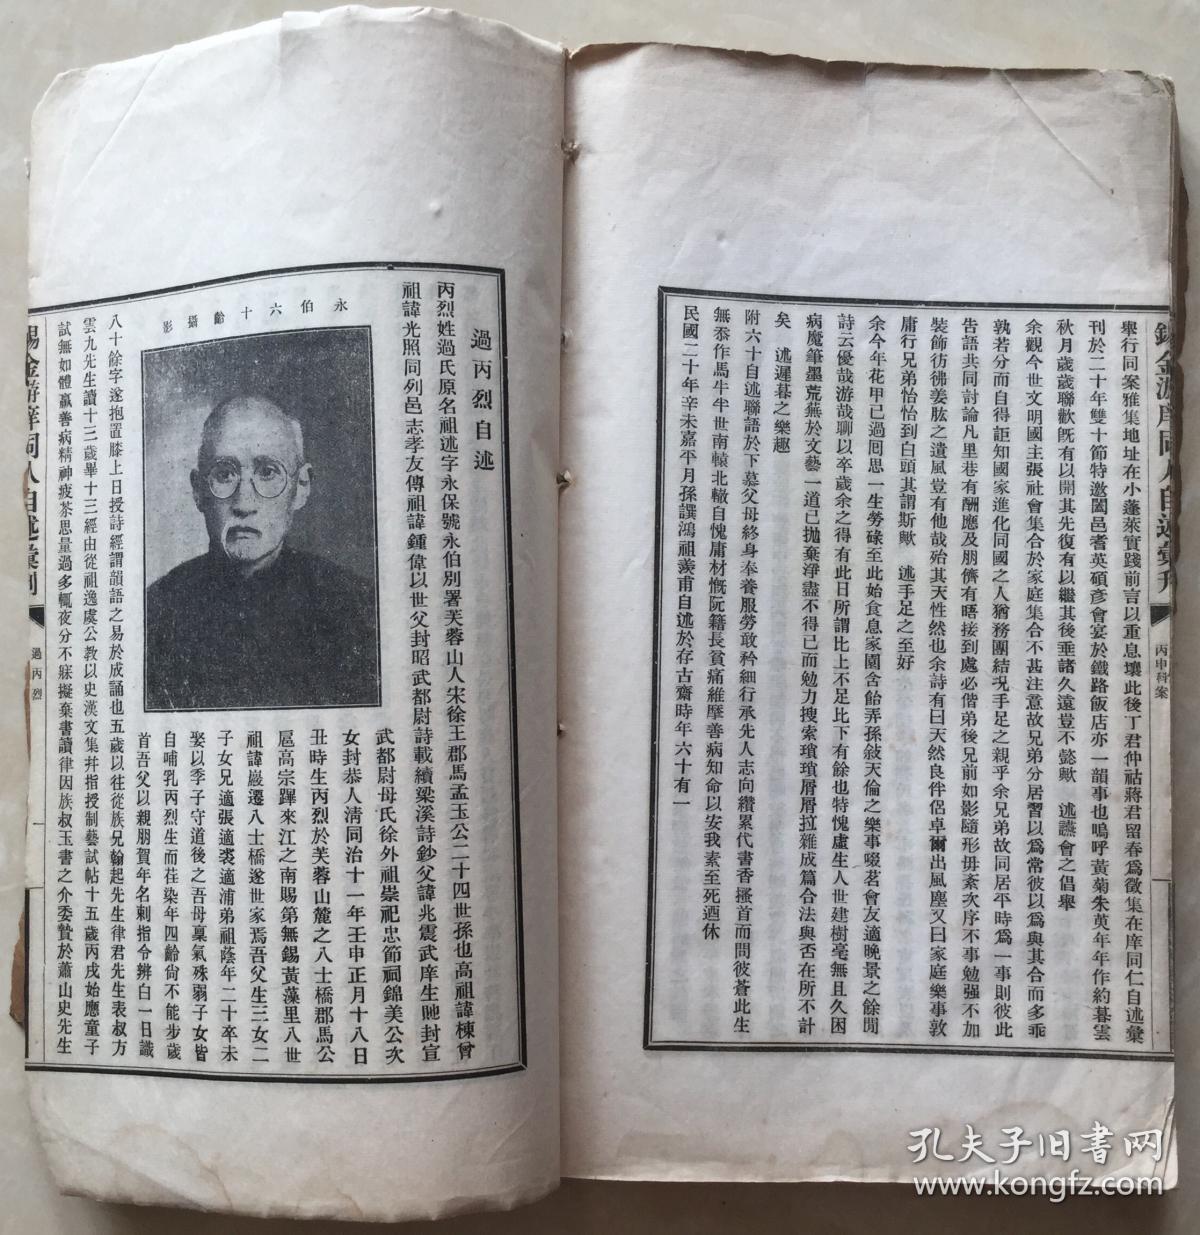 舉行同案雅集地址在小蓬萊實踐前言以重息壤此後丁君仲祜蔣君留春爲徵集在庠同仁自述彙
刊於二十年雙十節特邀闔邑耆英碩彥會宴於鐵路飯店亦一韻事也嗚呼黃菊朱萸年年作約暮雲
秋月歲歲聯歡旣有以開其先復有以繼其後垂諸久遠豈不懿歟　述讌會之倡舉
余觀今世文明國主張社會集合於家庭集合不甚注意故兄弟分居習以爲常彼以爲與其合而多乖
孰若分而自得詎知國家進化同國之人猶務團結況手足之親乎余兄弟故同居平時爲一事則彼此
告語共同討論凡里巷有酬應及朋儕有晤接到處必偕弟後兄前如影隨形毋紊次序不事勉强不加
裝飾彷彿姜肱之遺風豈有他哉殆其天性然也余詩有曰天然良伴侶卓爾出風塵又曰家庭樂事敦
庸行兄弟怡怡到白頭其謂斯歟　述手足之至好
余今年花甲已過囘思一生勞碌至此始食息家園含飴弄孫敍天倫之樂事啜茗會友適晚景之餘閒
詩云優哉游哉聊以卒歲余之得有此日所謂比上不足比下有餘也特愧虛生人世建樹毫無且久困
病魔筆墨荒蕪於文藝一道已拋棄淨盡不得已而勉力搜索瑣瑣屑屑拉雜成篇合法與否在所不計
矣　述遲暮之樂趣
附六十自述聯語於下慕父母終身奉養服勞敢矜細行承先人志向纘累代書香搔首而問彼蒼此生
無忝作馬牛半世南轅北轍自愧庸材慨阮籍長貧痛維摩善病知命以安我素至死迺休
民國二十年辛未嘉平月孫譔鴻祖羨甫自述於存古齋時年六十有一
錫金游庠同人自述彙刊
丙申科案
過丙烈自述
丙烈姓過氏原名祖述字永保號永伯別署芙蓉山人宋徐王郡馬孟玉公二十四世孫也高祖諱棟曾
祖諱光照同列邑志孝友傳祖諱鍾偉以世父封昭武都尉詩載續梁溪詩鈔父諱兆震武庠生貤封宣
永伯六十齡攝影
武都尉母氏徐外祖崇祀忠節祠錦美公次
女封恭人淸同治十一年壬申正月十八日
丑時生丙烈於芙蓉山麓之八士橋郡馬公
扈高宗蹕來江之南賜第無錫黃藻里八世
祖諱巖遷八士橋遂世家焉吾父生三女二
子女兄適張適裘適浦弟祖蔭年二十卒未
娶以季子守道後之吾母稟氣殊弱子女皆
自哺乳丙烈生而荏染年四齡尙不能步歲
首吾父以親朋賀年名剌指令辨白一日識
八十餘字遂抱置膝上日授詩經謂韻語之易於成誦也五歲以往從族兄翰起先生律君先生表叔方
雲九先生讀十三歲畢十三經由從祖逸虞公教以史漢文集幷指授制藝試帖十五歲丙戌始應童子
試無如體羸善病精神疲苶思量過多輒夜分不寐擬棄書讀律因族叔玉書之介委贄於蕭山史先生
錫金游庠同人自述彙刊
過丙烈
一
孔夫子旧书网
www.kongfz.com